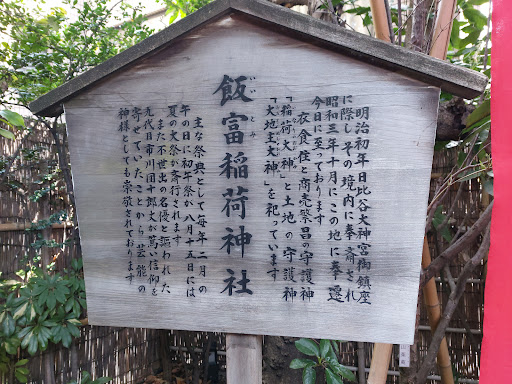 明治初年日比谷大神宮御鎮座
に際し その境内に奉斎され
昭和三年十月にこの地に奉遷
今日に至っております
衣食住と商売繁昌の守護神
「稲荷大神」と土地の守護神
「大地主大神」を祀っています
飯富稲荷神社
いいとみ
主な祭典として毎年二月の
午の日に初午祭が八月十五日には
夏の大祭が斉行されます
また不世出の名優と謳われた
九代目市川団十郎丈が篤い信仰を
寄せていたことから芸能の
神様としても崇敬されております